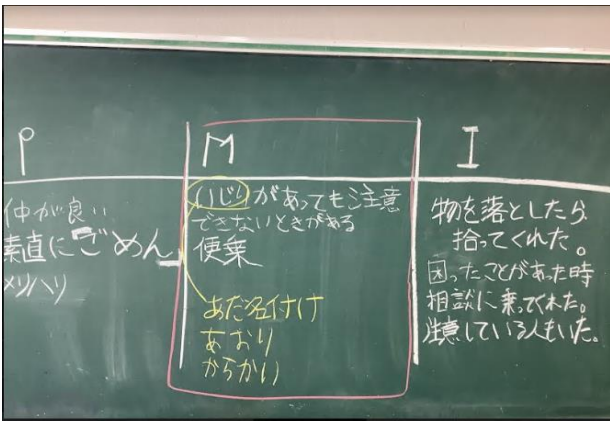 P
仲が良い
素直にごめん
メリハリ
M
いじりがあっても注意
できないときがある
便乗
あだ名付け
あおり
からかい
I
物を落としたら
拾ってくれた。
困ったことがあった時
相談に乗ってくれた。
注意している人もいた。